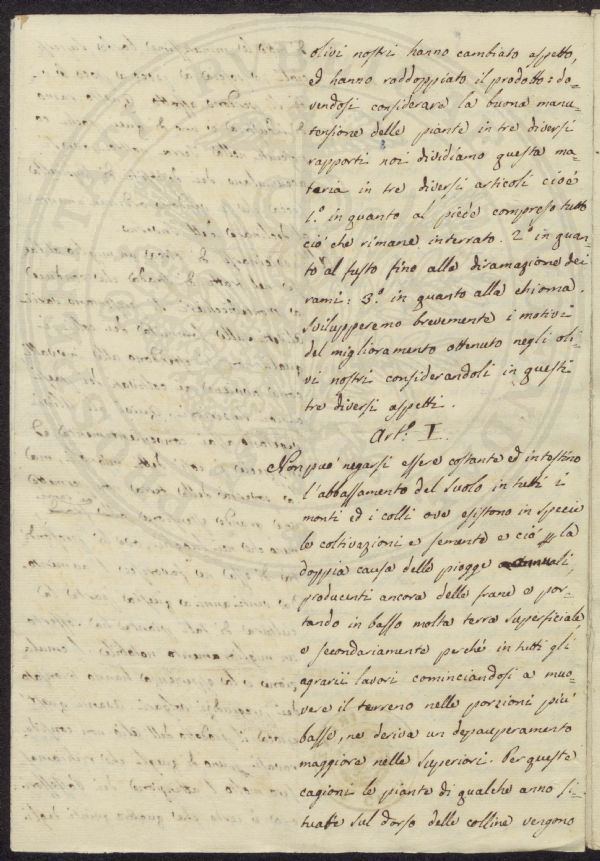 olivi nostri hanno cambiato aspetto,
ed hanno raddoppiato il prodotto: do-
vendosi considerare la buona manu-
tensione delle piante in tre diversi
rapporti noi dividiamo questa ma-
teria in tre diversi articoli cioè
1.° in quanto al piede compreso tutto
ciò che rimane interrato. 2° in quan-
to al fusto fino alla diramazione dei
rami: 3.° in quanto alla chioma.
Svilupperemo brevemente i motivi
del miglioramento ottenuto negli oli-
vi nostri considerandoli in questi
tre diversi aspetti.
Art.° I.
Non può negarsi essere costante ed intestino
l'abbassamento del suolo in tutti i
monti ed i colli ove esistono in specie
le coltivazioni e semente e ciò la
doppia causa delle piogge annuali
producenti ancora delle frane e por-
tando in basso molta terra superficiale,
e secondariamente perché in tutti gli
agrarii lavori cominciandosi a muo-
vere il terreno nelle porzioni più
basse, ne deriva un depauperamento
maggiore nelle superiori. Per queste
cagioni le piante di qualche anno si-
tuate sul dorso delle colline vengono